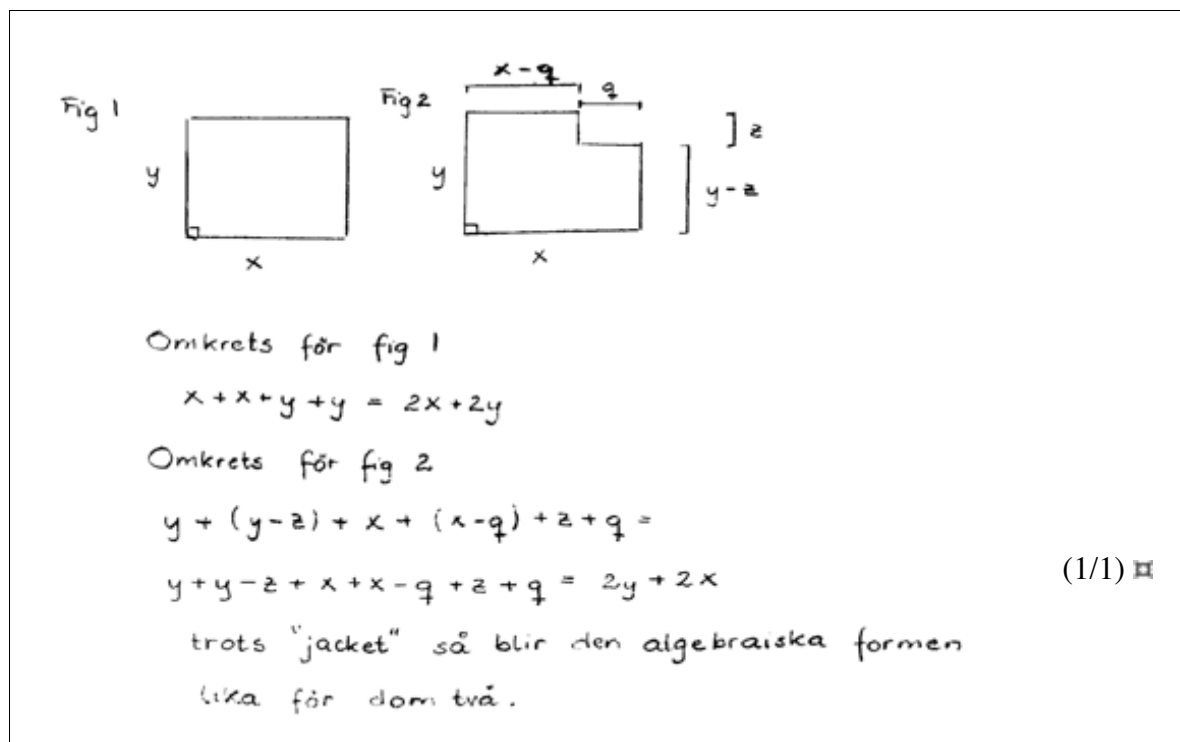 x - q
Fig 1
Fig 2
q
z
y
y
y - z
x
x
Omkrets för fig 1
x + x + y + y = 2x + 2y
Omkrets för fig 2
y + (y - z) + x + (x - q) + z + q =
y + y - z + x + x - q + z + q = 2y + 2x
(1/1) ¤
trots "jacket" så blir den algebraiska formen
lika för dom två.